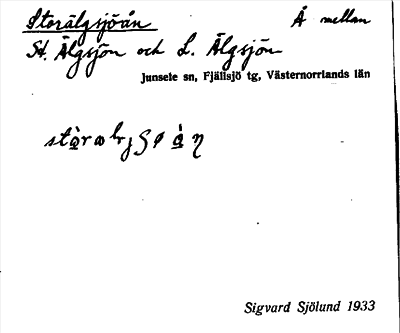 Storälgsjöån Å mellan
St. Älgsjön och L. Älgsjön
Junsele sn, Fjällsjö tg, Västernorrlands län
Sigvard Sjölund 1933